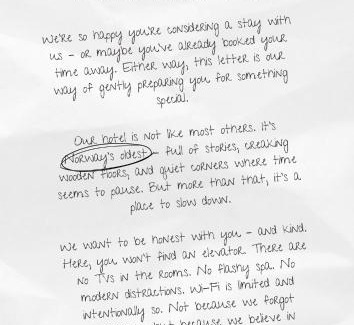 We're so happy you're considering a stay with
us - or maybe you've already booked your
time away. Either way, this letter is our
way of gently preparing you for something
special.
Our hotel is not like most others. It's
Norway's oldest - full of stories, creaking
wooden floors, and quiet corners where time
seems to pause. But more than that, it's a
place to slow down.
We want to be honest with you - and kind.
Here, you won't find an elevator. There are
no TVs in the rooms. No flashy spa. No
modern distractions. Wi-Fi is limited and
intentionally so. Not because we forgot
but because we believe in